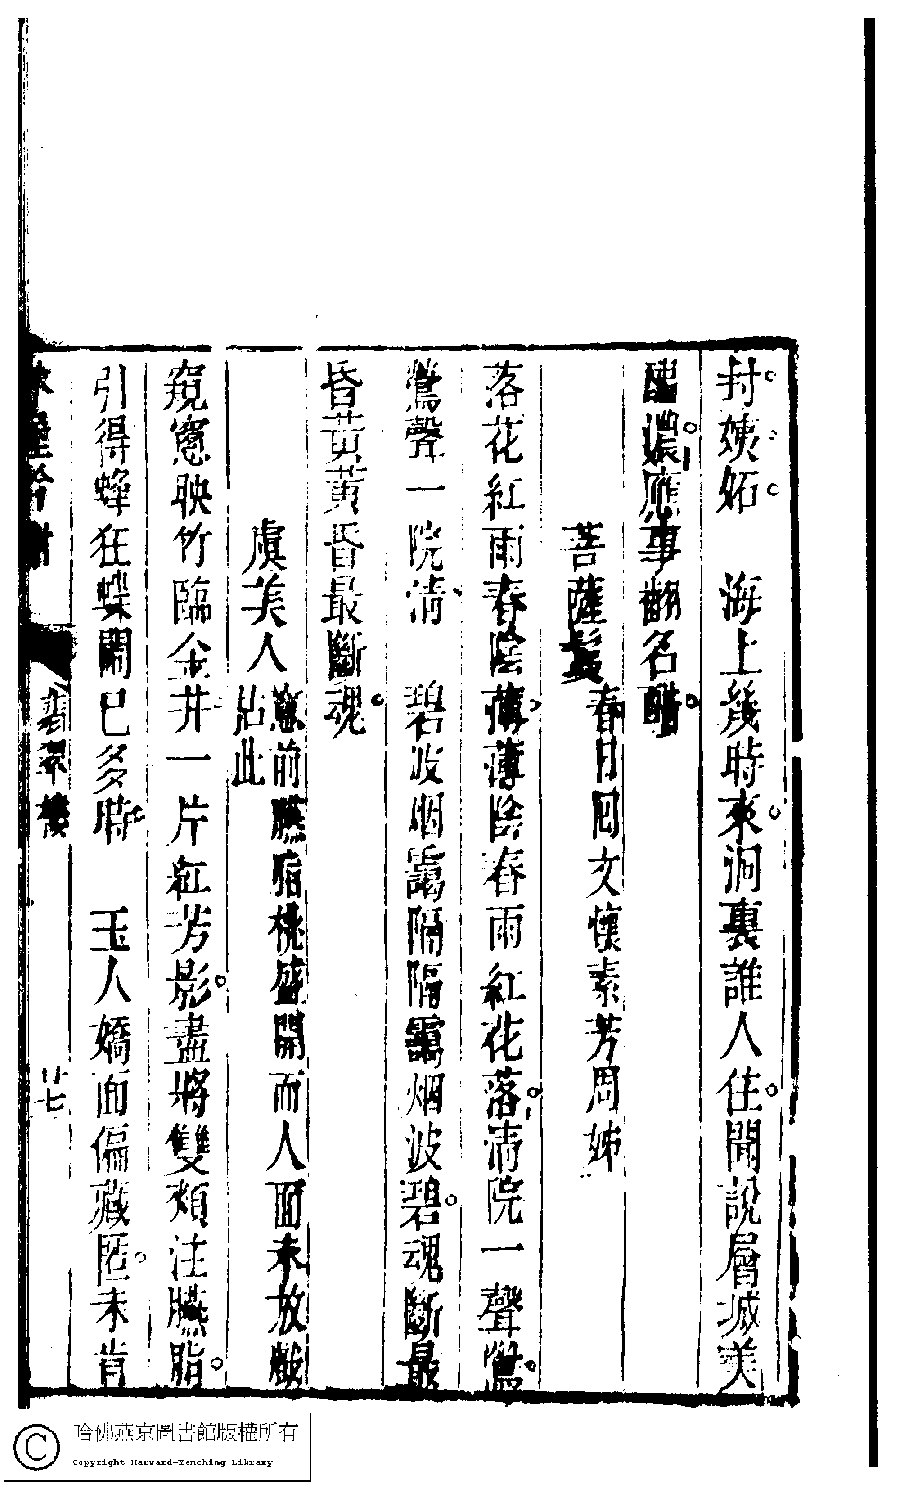 封姨妬　海上幾時來洞裏誰人住聞說層城美
醲應事翻名醋
菩薩鬘春日回文懷素芳周姊
落花紅雨春陰薄薄陰春雨紅花落清院一聲鶯
鶯聲一院清　碧波烟靄隔隔靄烟波碧魂斷最
昏黃黃昏最斷魂
虞美人窓前臙脂桃盛開而人面未放戲
占此
窺窓映竹臨金井一片紅芳影盡將雙頰注臙脂
引得蜂狂蝶鬧已多時　玉人嬌面偏藏匿未肯
翠樓
廿七
哈佛燕京圖書館版權所有
Copyright Harvard-Yenching Library